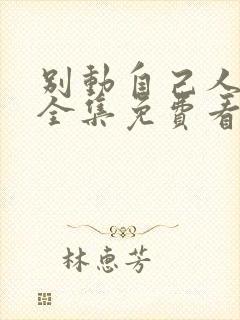 别動自己人
全集免費看
林惠芳